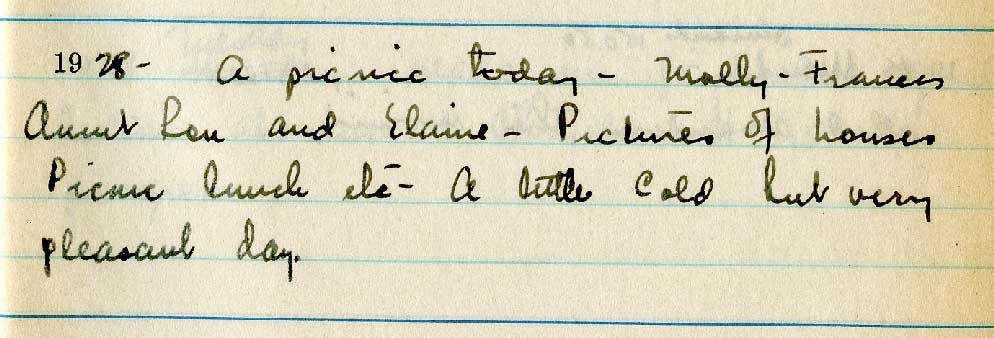 1928- A picnic today - Molly - Frances
Aunt Lou and Elaine - Pictures of houses
Picnic lunch etc - A little cold but very
pleasant day.